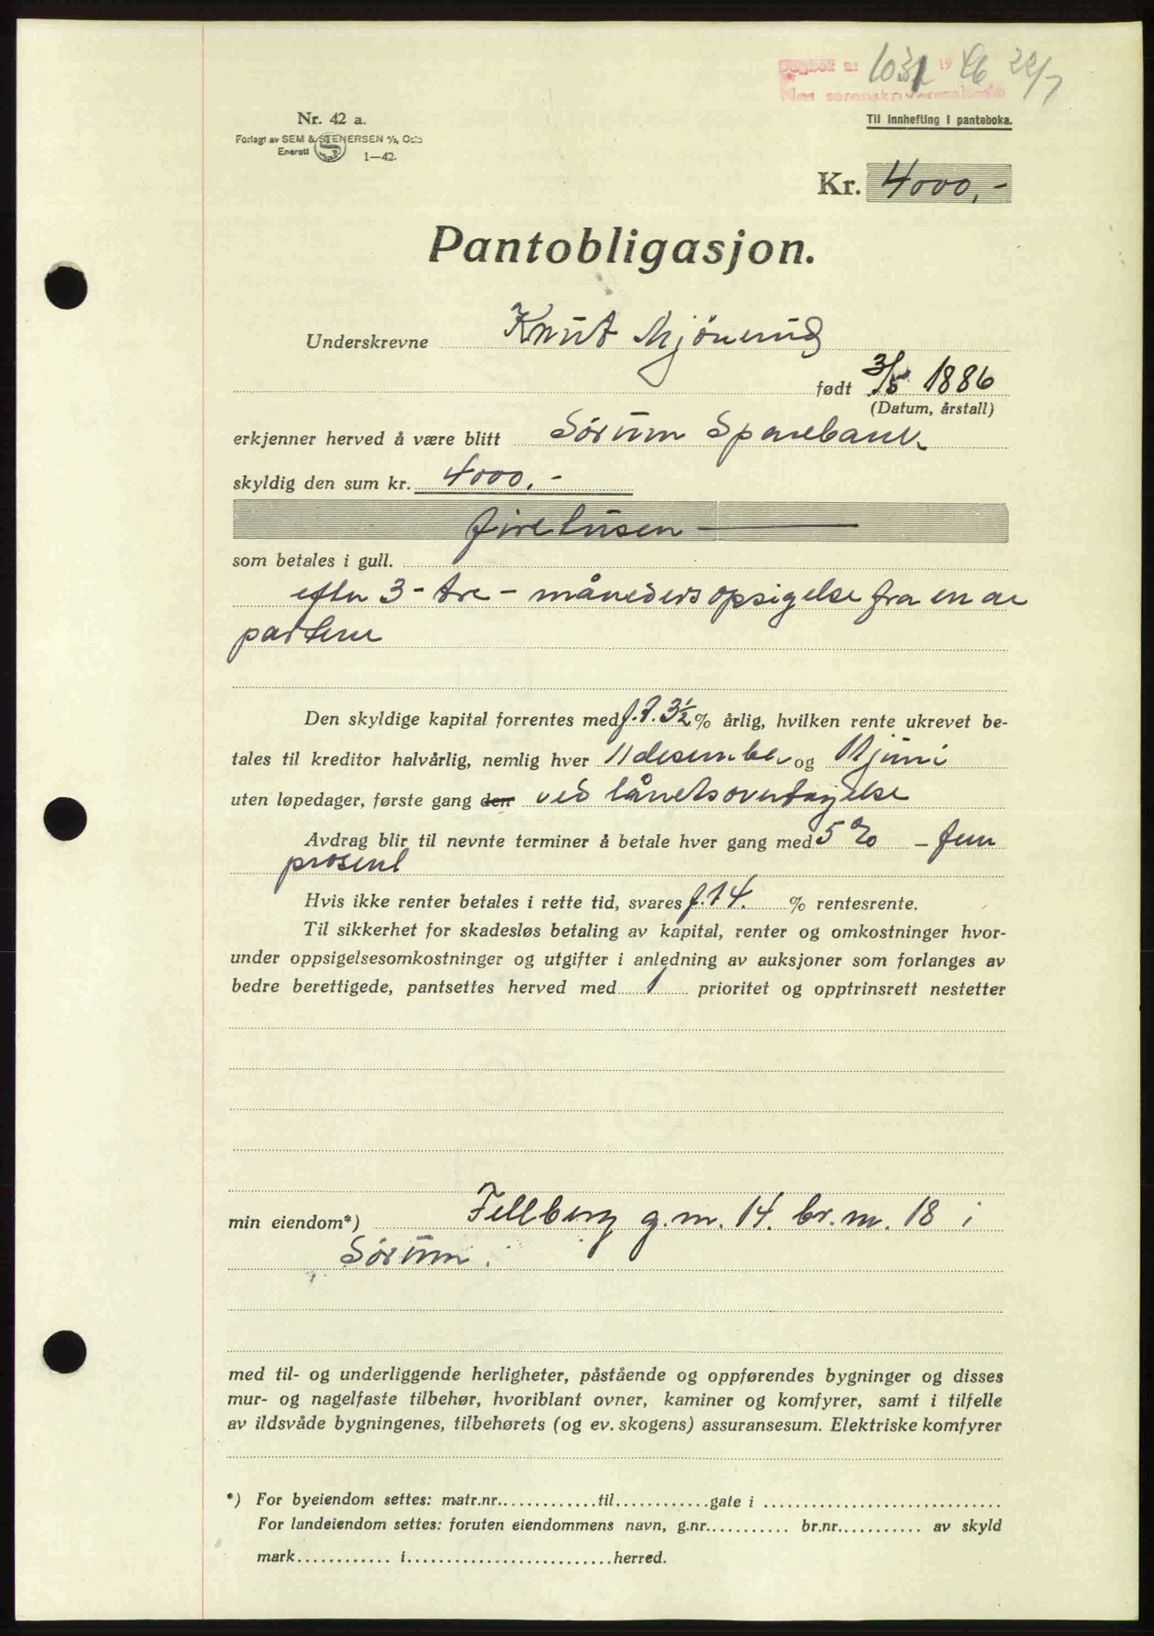 Dagbok nr. 1031 1946 22/7
Nes sorenskriverembede
Nr. 42 a.
Til innhefting i panteboka.
Forlagt av SEM & STENERSEN A/S, Oslo
Enerett 1—42.
Kr. 4000,-
Pantobligasjon.
Underskrevne Knut Mjönerud
født 3/5 1886
(Datum, årstall)
erkjenner herved å være blitt Sörum Sparebank
skyldig den sum kr. 4000,-
firetusen
som betales i gull.
efter 3 - tre - måneders opsigelse fra en av
partene
Den skyldige kapital forrentes med f.t. 3½ % årlig, hvilken rente ukrevet be-
tales til kreditor halvårlig, nemlig hver 11 desember og 11 juni
uten løpedager, første gang den ved lånets overtagelse
Avdrag blir til nevnte terminer å betale hver gang med 5 % - fem
prosent
Hvis ikke renter betales i rette tid, svares f.t 4. % rentesrente.
Til sikkerhet for skadesløs betaling av kapital, renter og omkostninger hvor-
under oppsigelsesomkostninger og utgifter i anledning av auksjoner som forlanges av
bedre berettigede, pantsettes herved med 1 prioritet og opptrinsrett nestetter
min eiendom*) Fellberg g.nr. 14. br.nr. 18 i
Sörum.
med til- og underliggende herligheter, påstående og oppførendes bygninger og disses
mur- og nagelfaste tilbehør, hvoriblant ovner, kaminer og komfyrer, samt i tilfelle
av ildsvåde bygningenes, tilbehørets (og ev. skogens) assuransesum. Elektriske komfyrer
*) For byeiendom settes: matr.nr.............til............gate i ..............................
For landeiendom settes: foruten eiendommens navn, g.nr........... br.nr........... av skyld
mark............ i..........................herred.